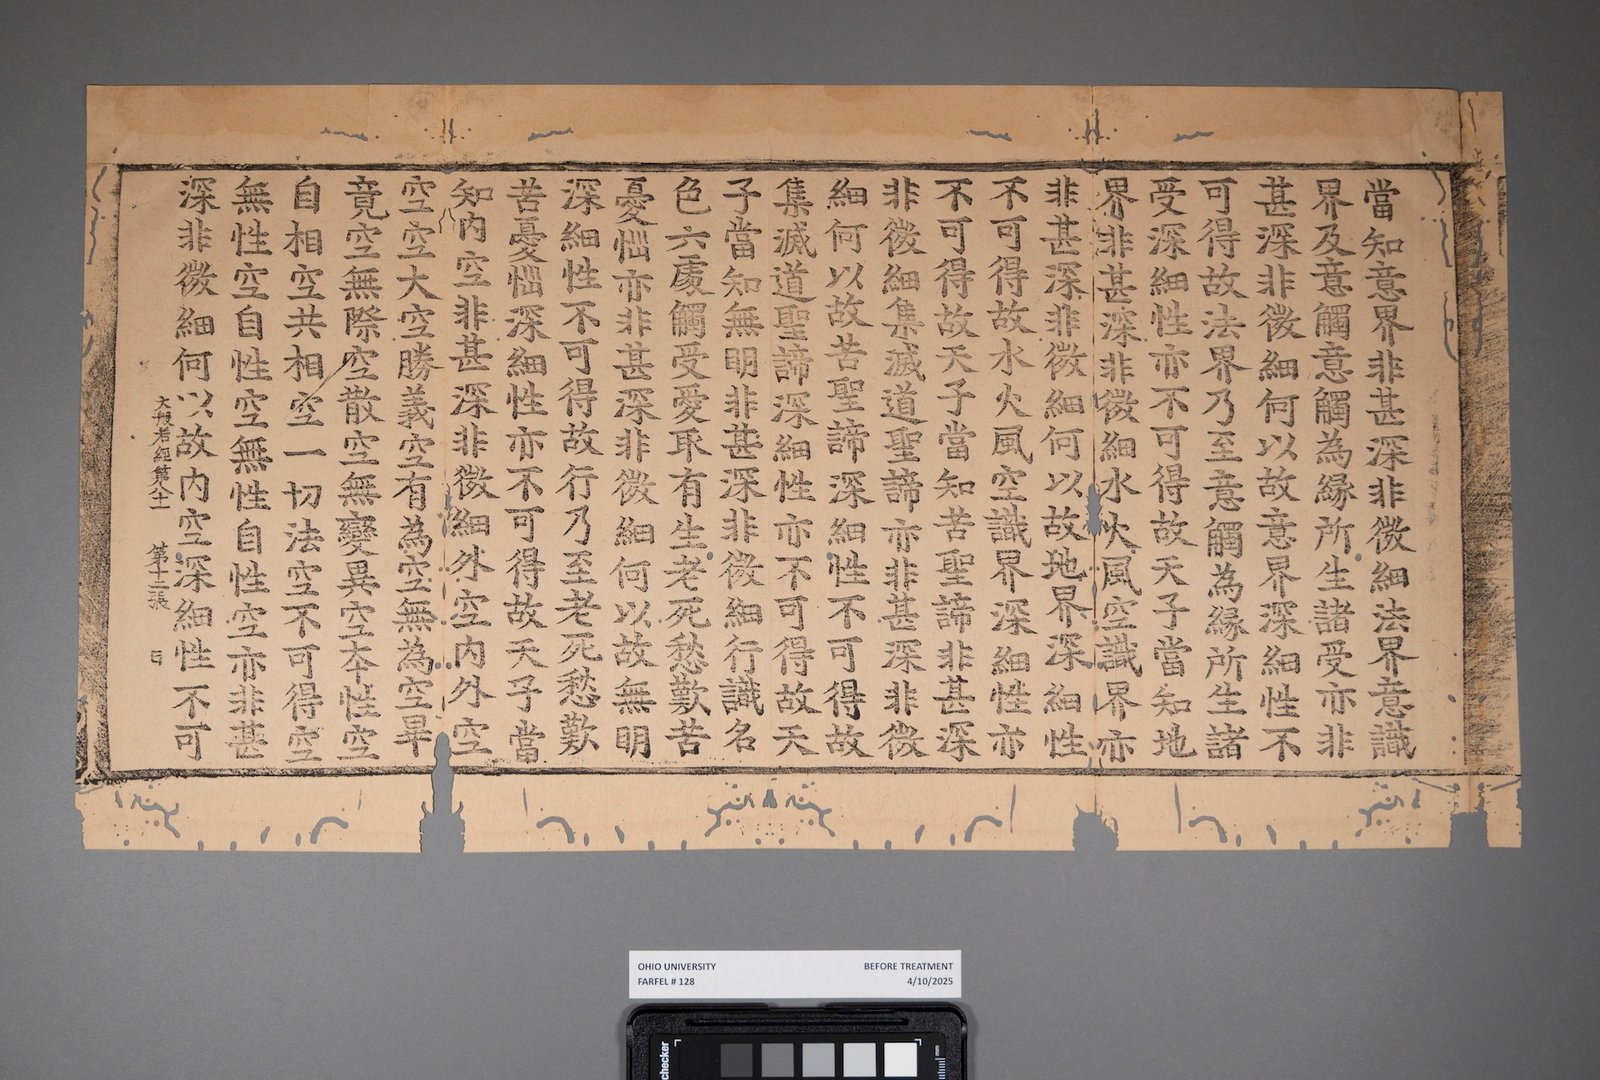 當知意界非甚深非微細法界意識
界及意觸意觸為緣所生諸受亦非
甚深非微細何以故意界深細性不
可得故法界乃至意觸為緣所生諸
受深細性亦不可得故天子當知地
界非甚深非微細水火風空識界亦
非甚深非微細何以故地界深細性
不可得故水火風空識界深細性亦
不可得故天子當知苦聖諦非甚深
非微細集滅道聖諦亦非甚深非微
細何以故苦聖諦深細性不可得故
集滅道聖諦深細性亦不可得故天
子當知無明非甚深非微細行識名
色六處觸受愛取有生老死愁歎苦
憂惱亦非甚深非微細何以故無明
深細性不可得故行乃至老死愁歎
苦憂惱深細性亦不可得故天子當
知內空非甚深非微細外空內外空
空空大空勝義空有為空無為空畢
竟空無際空散空無變異空本性空
自相空共相空一切法空不可得空
無性空自性空無性自性空亦非甚
深非微細何以故內空深細性不可
大般若經第八十一 第十三張
OHIO UNIVERSITY BEFORE TREATMENT
FARFEL # 128 4/10/2025
checker
mm